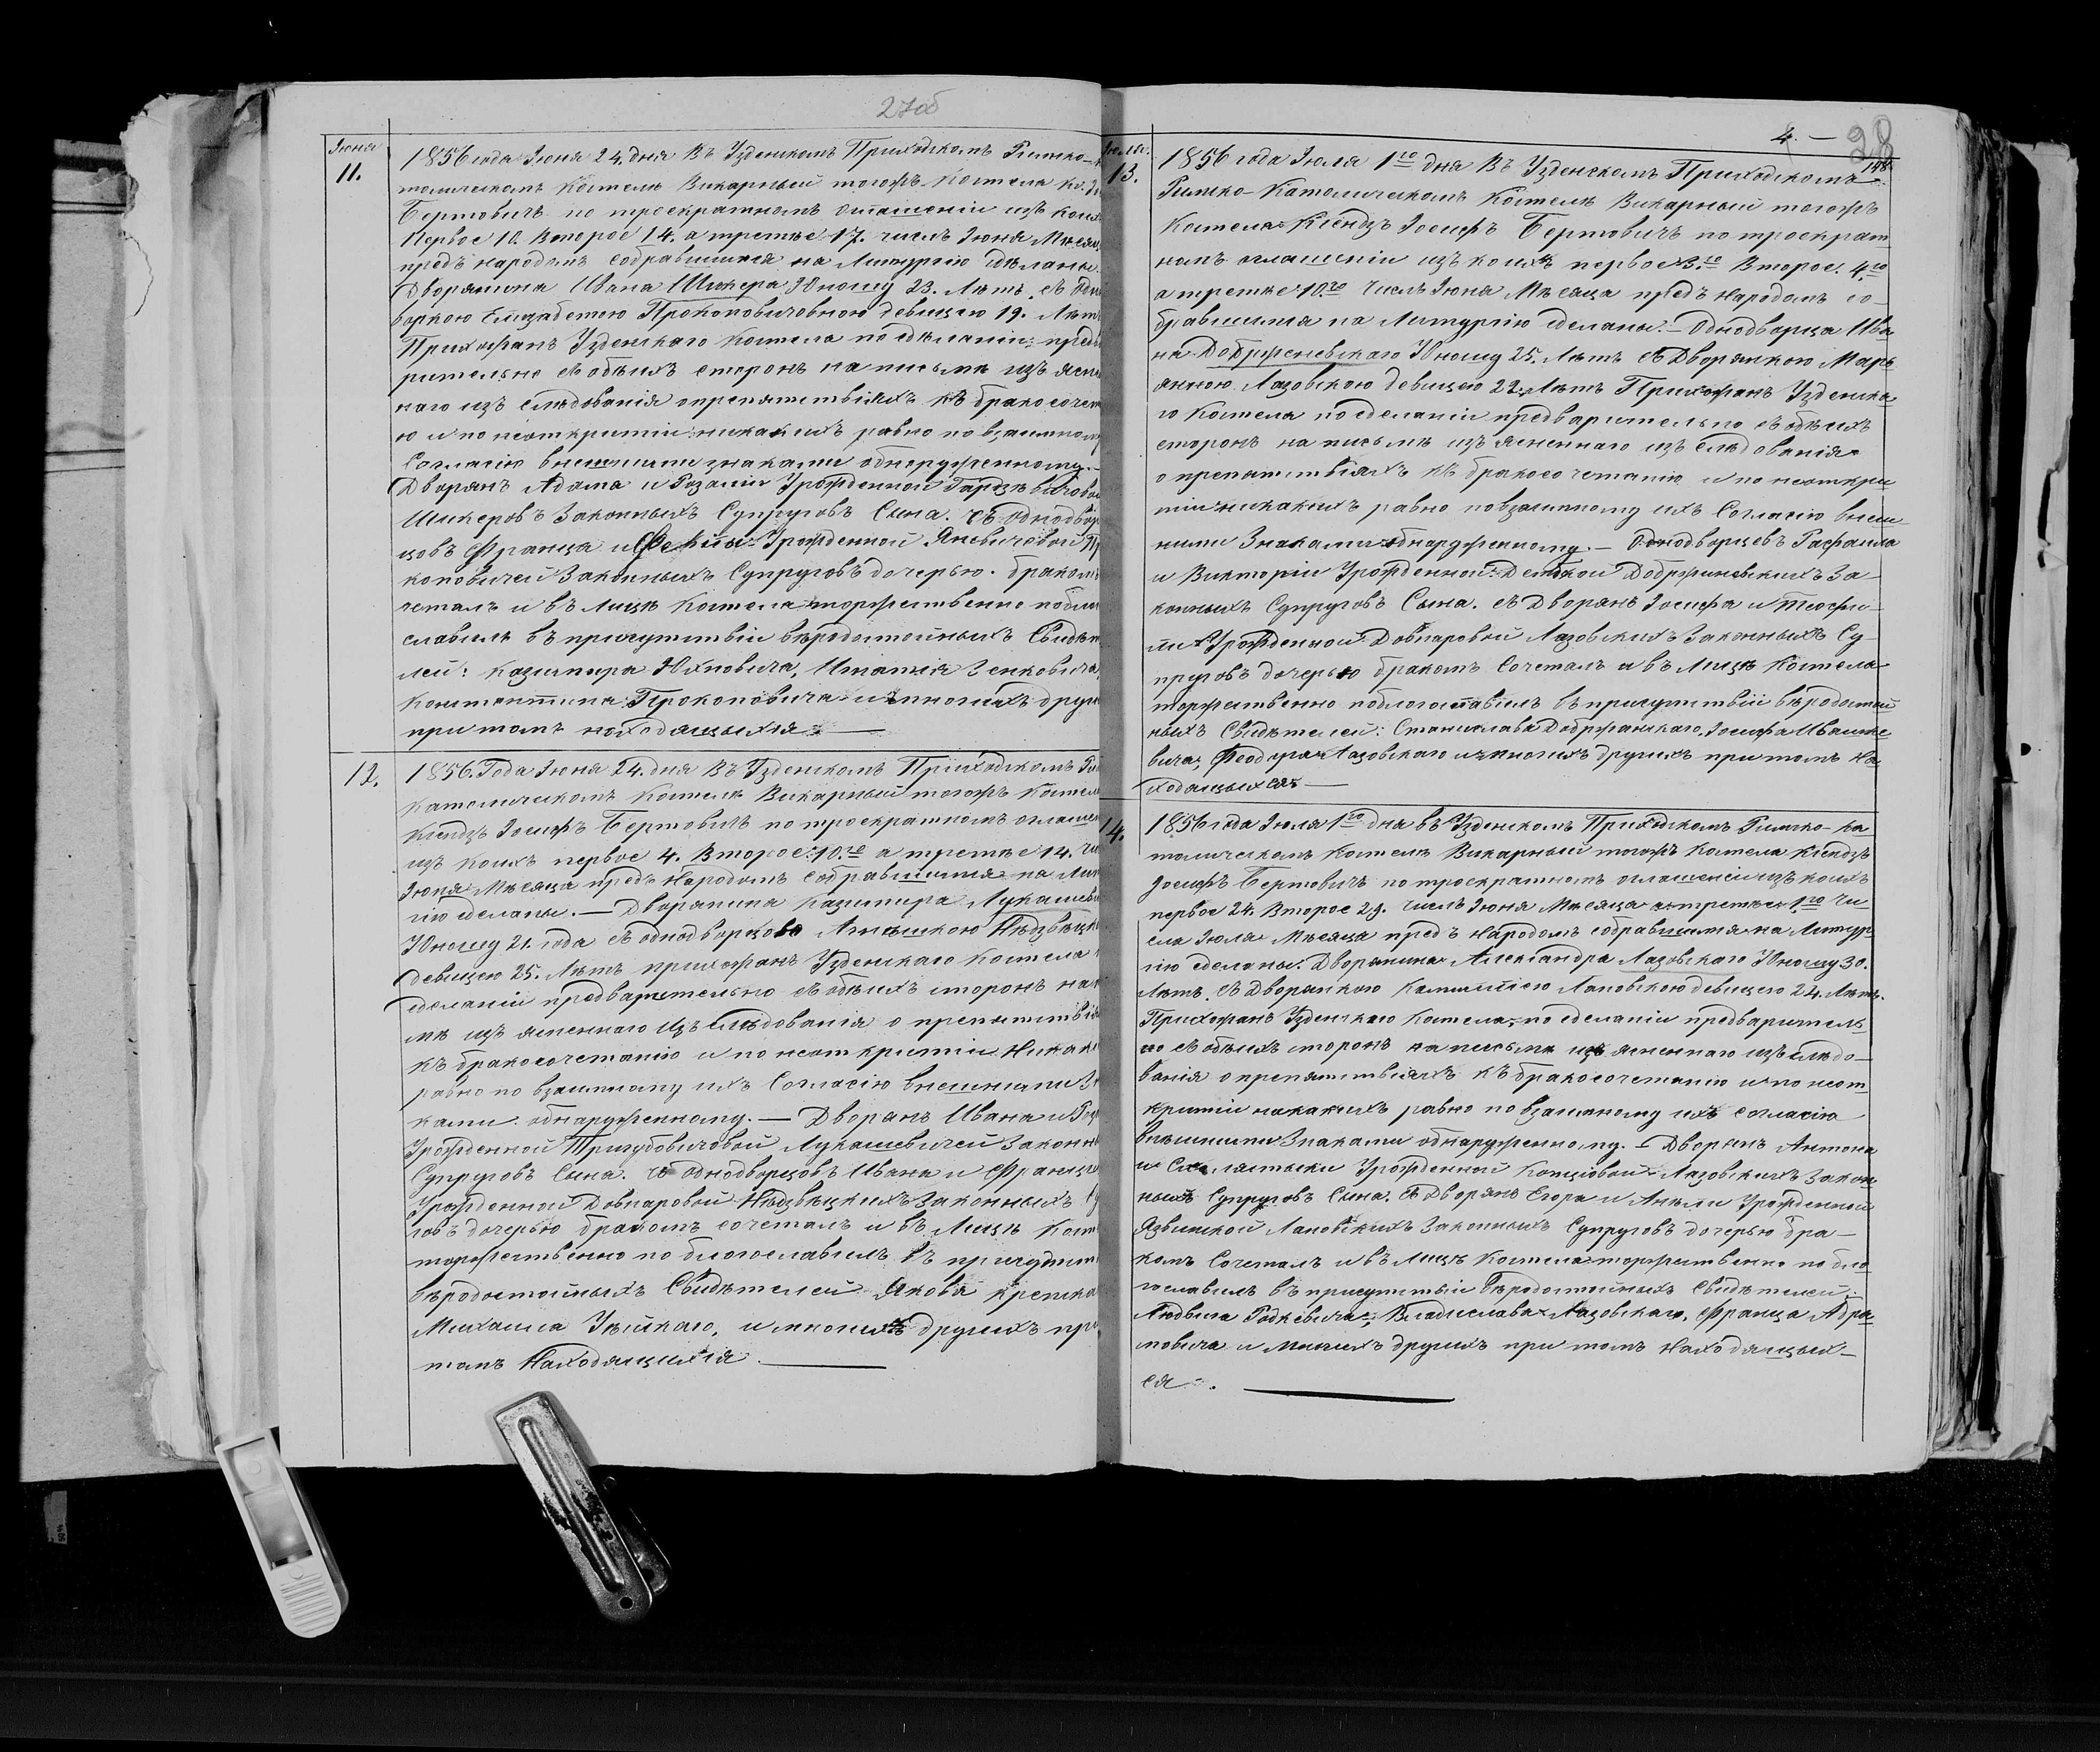 27об
Іюня
11.
1856 года Іюня 24. дня Въ Узденскомъ Приходскомъ Римско-
толическомъ Костелѣ Викарный тогожъ Костела Кс.
Бертовичъ по троекратномъ оглашеніи изъ коихъ
Первое 10. Второе 14. а третье 17. числъ Іюня Мѣсяца
предъ народомъ собравшимся на Литургію сдѣланы.
Дворянина Ивана Шикера Юношу 23. Лѣтъ, съ Одно
воркою Елизабетою Прокоповичовною девицею 19. Лѣтъ
Прихожанъ Узденскаго Костела по сдѣланіи предва
рительно съ обѣихъ сторонъ на письмѣ изъ ясне
наго изъ слѣдованія о препятствіяхъ къ бракосочета
ю и по неоткрытіи никакихъ равно по взаимному
Согласію внешними знаками обнаруженному. —
Дворянъ Адама и Розаліи Урожденной
Шикеровъ Законныхъ Супруговъ Сына. съ однодвор
цовъ Франца и Урожденной Яневичовой Пр
коповичей Законныхъ Супруговъ дочерью. бракомъ
четалъ и въ Лицѣ Костела торжественно поблаго
славилъ въ присутствіи вѣродостойныхъ Свидѣте
лей: Казимира Юхновича, Игнатія Зенковича,
Константина Прокоповича и многихъ други
при томъ находящыхся. —
12.
1856. Года Іюня 24. дня Въ Узденскомъ Приходскомъ Ри
Католическомъ Костелѣ Викарный тогожъ Костел
Ксендзъ Іосифъ Бертовичъ по троекратномъ оглашен
изъ коихъ первое 4. Второе 10.го а третье 14. чи
Іюня Мѣсяца предъ Народомъ собравшимся на Лит
гію сделаны. — Дворянина Казимира Лукашев
Юношу 21. года съ однодворцовою Агнѣшкою Нѣдзвѣцк
девицею 25. Лѣтъ прихожанъ Узденскаго Костела
сделаніи предварительно съ обѣихъ сторонъ на
мѣ изъ ясненнаго Изъ слѣдованія о препятствія
къ бракосочетанію и по неоткрытіи Никак
равно по взаимному ихъ Согласію внешними Зн
ками обнаруженному. — Дворянъ Ивана и Роз
Урожденной Тригубовичовой Лукашевичей Законн
Супруговъ Сына. съ однодворцовъ Ивана и Франц
Урожденной Довнаровой Нѣдзвѣцкихъ Законныхъ Су
говъ дочерью бракомъ сочеталъ и въ Лицѣ Кост
торжественно по благославилъ въ присудств
вѣродостойныхъ Свидѣтелей Якова
Михаила и многихъ другихъ при
томъ Находящихся. —
4. —
28
148
Іюля.
13.
1856 года Іюля 1го дня Въ Узденскомъ Приходскомъ
Римско-Католическомъ Костелѣ Викарный тогожъ
Костела Ксендзъ Іосифъ Бертовичъ по троекрат
номъ оглашеніи изъ коихъ первое 3.го Второе. 4.го
а третье 10.го Числъ Іюня Мѣсяца предъ Народомъ со-
бравшимся на Литургію сделаны. — Однодворца Ива
на Добрженевскаго Юношу 25. Лѣтъ съ Дворянкою Марь
янною Лазовскою девицею 22. Лѣтъ Прихожанъ Узденска
го Костела по сделаніи предварительно съ обѣихъ
сторонъ на письмѣ изъ ясненнаго изъ слѣдованія
о препятствіяхъ къ бракосочетанію и по неоткры
тіи никакихъ равно повзаимному ихъ Согласію внеш
ними Знаками обнаруженному. — Однодворцевъ Рафаила
и Викторіи Урожденной Добржиневскихъ За-
конныхъ Супруговъ Сына. съ Дворянъ Іосифа и Теофи-
ли Урожденной Довнаровой Лазовскихъ Законныхъ Су-
пруговъ дочерью бракомъ Сочеталъ и въ Лицѣ Костела
торжественно поблогославилъ въ присутствіи вѣродостой
ныхъ Свидѣтелей: Станислава Добржанскаго, Іосифа Ивашке
вича, Феодора Лазовскаго и многихъ другихъ притомъ На
ходящыхся —
14.
1856 года Іюля 1го дня въ Узденскомъ Приходскомъ Римско-Ка
толическомъ Костелѣ Викарный тогожъ Костела Ксендзъ
Іосифъ Бертовичъ по троекратномъ оглашеніи изъ коихъ
первое 24. Второе 29. числъ Іюня Мѣсяца а третье 1.го Чи-
сла Іюля Мѣсяца предъ Народомъ собравшимся на Литур
гію сделаны. Дворянина Александра Лазовскаго Юношу 30.
Лѣтъ. съ Дворянкою Камиллiею Лановскою девицею 24. Лѣтъ.
Прихожанъ Узденскаго Костела, по сделаніи предваритель
но съ обѣихъ сторонъ на письмѣ изъ ясненнаго изъ слѣдо-
ванія о препятствіяхъ къ бракосочетанію и по неот
крытіи никакихъ равно по взаимному ихъ согласію
внѣшними Знаками обнаруженному. — Дворянъ Антона
и Схолястыки Урожденной Лазовскихъ Закон
ныхъ Супруговъ Сына. съ Дворянъ Егора и Анѣли Урожденной
Язвинской Лановскихъ Законныхъ Супруговъ дочерью бра-
комъ Сочеталъ и въ Лицѣ Костела торжественно по бло
гославилъ въ присутствіи Вѣродостойныхъ Свидѣтелей:
Людвига Родкевича, Владислава Лазовскаго, Франца Абра
мовича и многихъ другихъ при томъ Находящых-
ся.